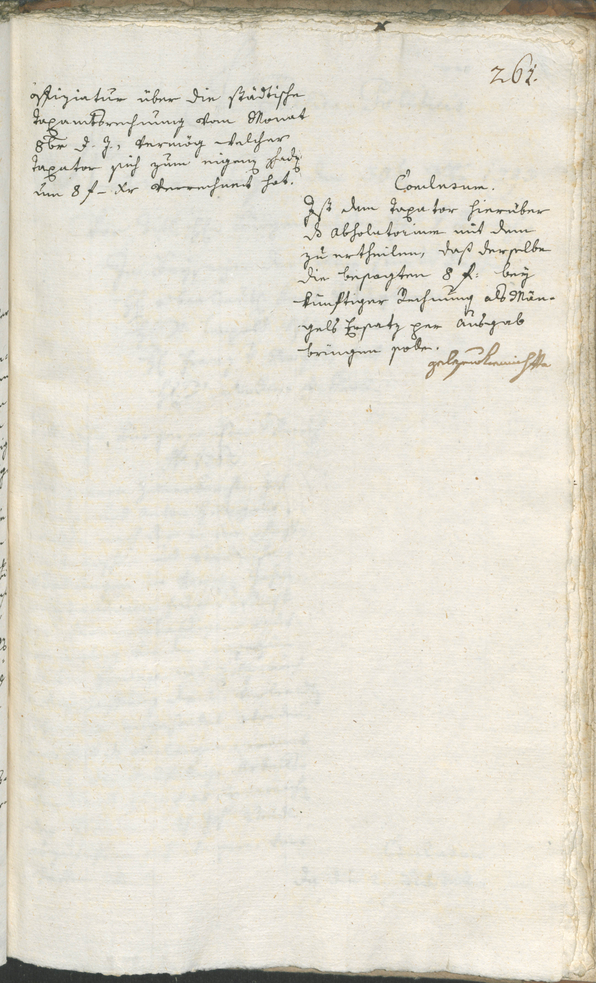 261.
offiziatur über die städtische
Taxamtsrechnung vom Monat
8br d. J., vermög welcher
Taxator sich zum eigenen
um 8 f – xr verrechnet hat.
Conclusum.
Ist dem Taxator hierüber
das Absolutorium mit dem
zu ertheilen, daß derselbe
die besagten 8 f: bey
künftiger Rechnung als Män-
gels Ersatz per Ausgab
bringen solle.